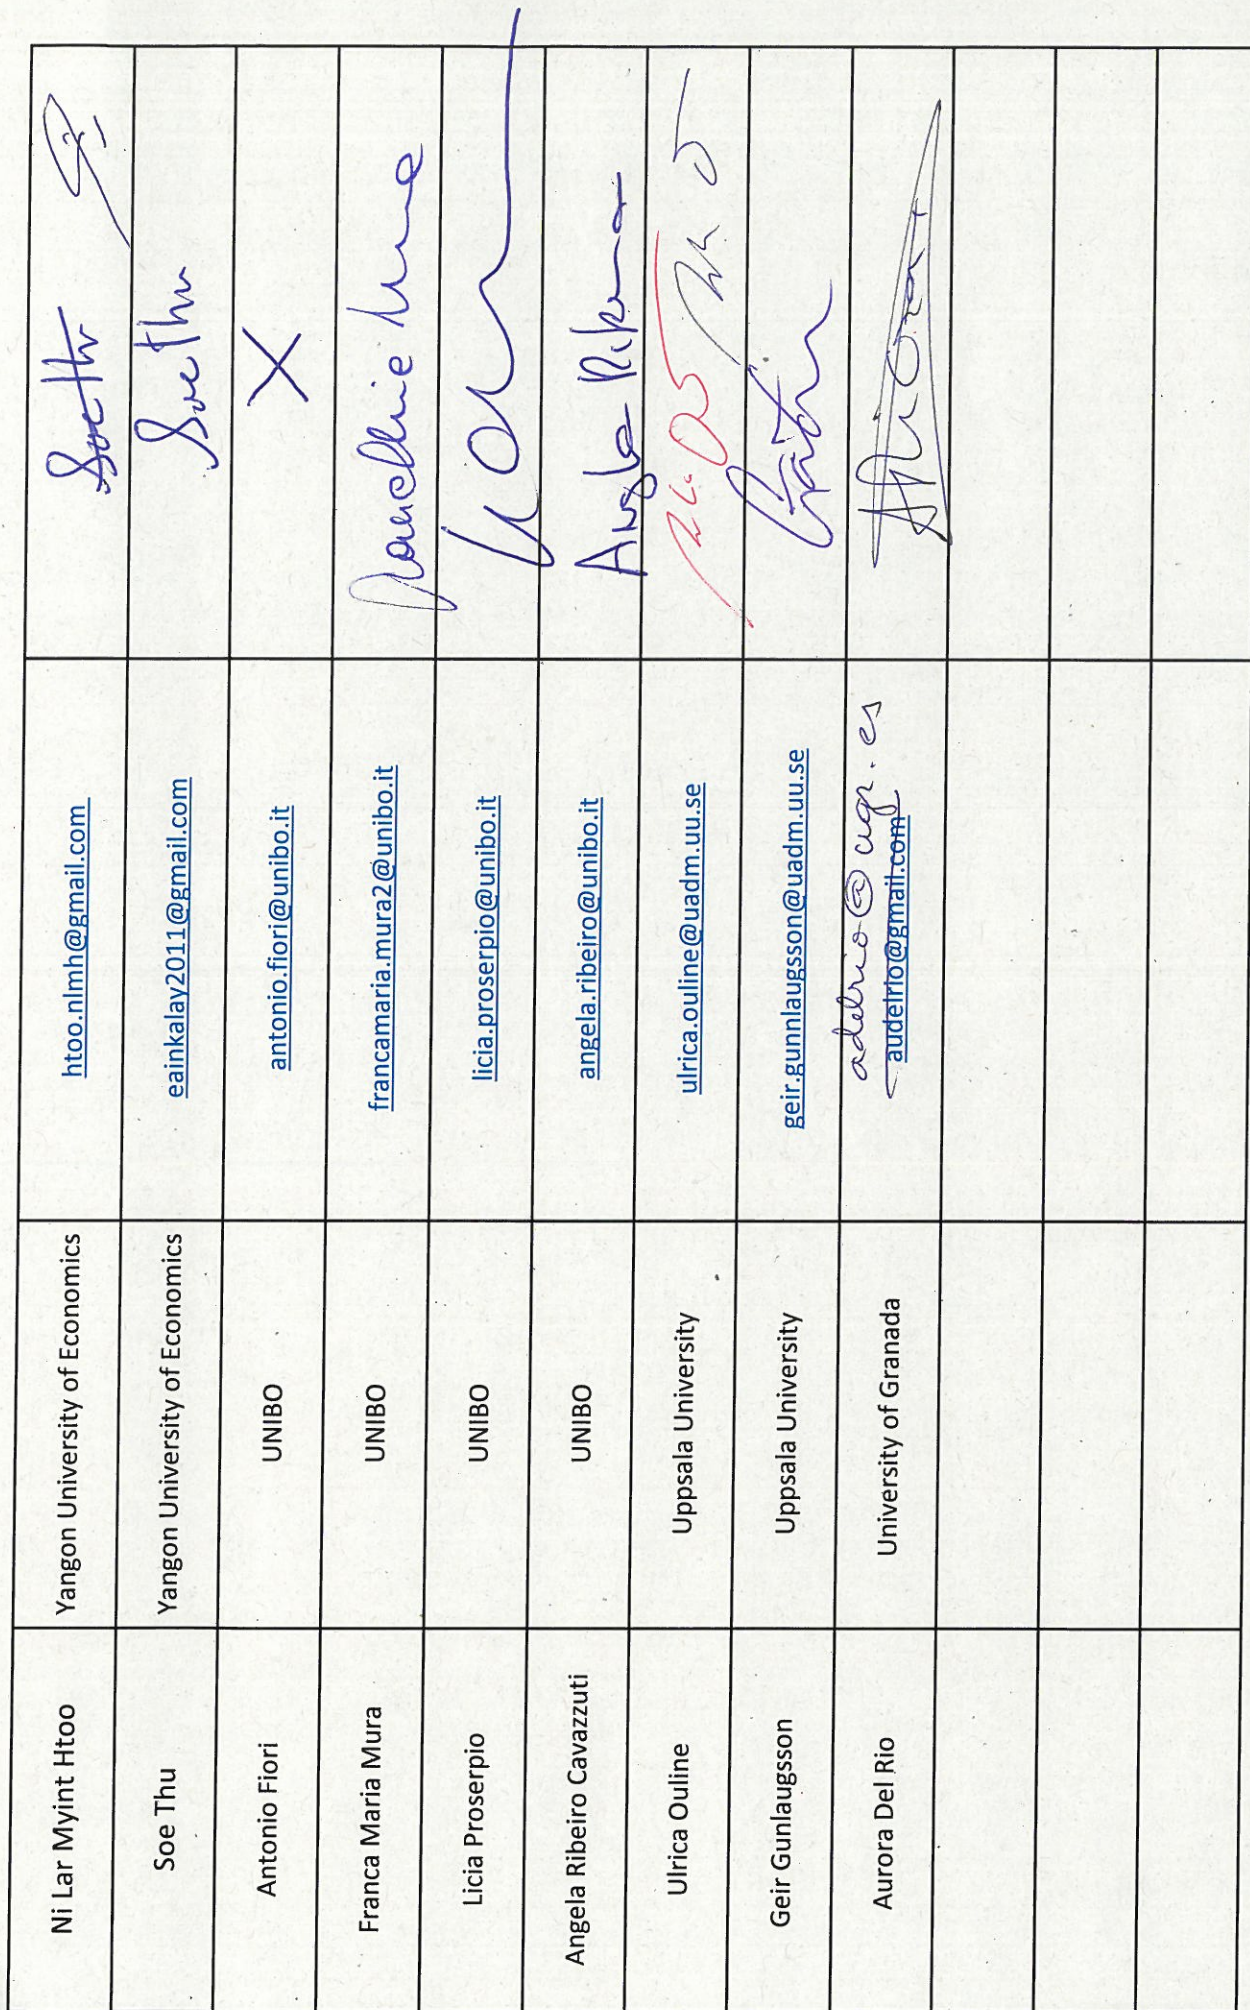 Ni Lar Myint Htoo Yangon University of Economics htoo.nlmh@gmail.com Soe Thu
Soe Thu Yangon University of Economics eainkalay2011@gmail.com Soe Thu
Antonio Fiori UNIBO antonio.fiori@unibo.it X
Franca Maria Mura UNIBO francamaria.mura2@unibo.it
Licia Proserpio UNIBO licia.proserpio@unibo.it
Angela Ribeiro Cavazzuti UNIBO angela.ribeiro@unibo.it Angela
Ulrica Ouline Uppsala University ulrica.ouline@uadm.uu.se
Geir Gunlaugsson Uppsala University geir.gunnlaugsson@uadm.uu.se
adelrio@ugr.es
Aurora Del Rio University of Granada audelrio@gmail.com